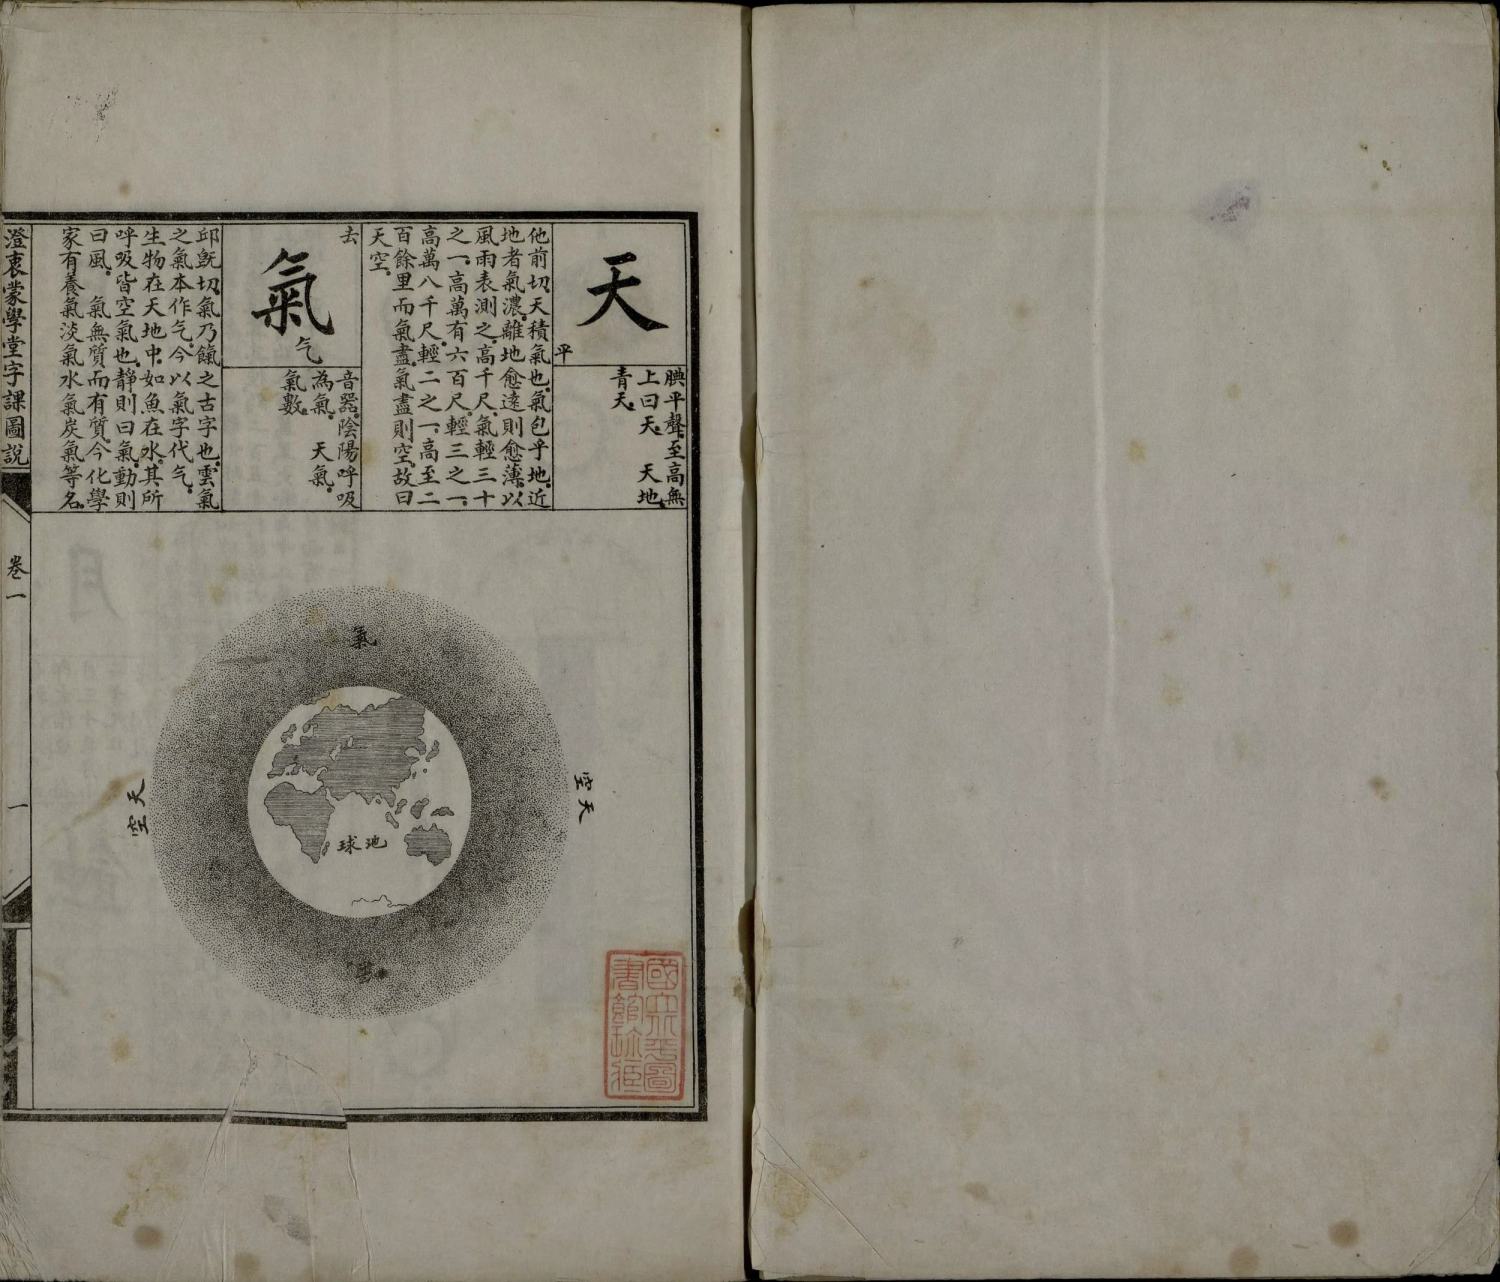 天
平
腆平聲。至高無
上曰天。天地。
青天。
他前切。天積氣也。氣包乎地。近
地者氣濃。離地愈遠則愈薄。以
風雨表測之。高千尺。氣輕三十
之一。高萬有六百尺。輕三之一。
高萬八千尺。輕二之一。高至二
百餘里而氣盡。氣盡則空。故曰
天空。
去
氣
气
音器。陰陽呼吸
為氣。天氣。
氣數。
邱旣切。氣乃餼之古字也。雲氣
之氣本作气。今以氣字代气。
生物在天地中。如魚在水。其所
呼吸皆空氣也。靜則曰氣。動則
曰風。氣無質而有質。今化學
家有養氣淡氣水氣炭氣等名。
氣
天空
地球
天空
國立北平圖
書館珍藏
澄衷蒙學堂字課圖說
卷一
一